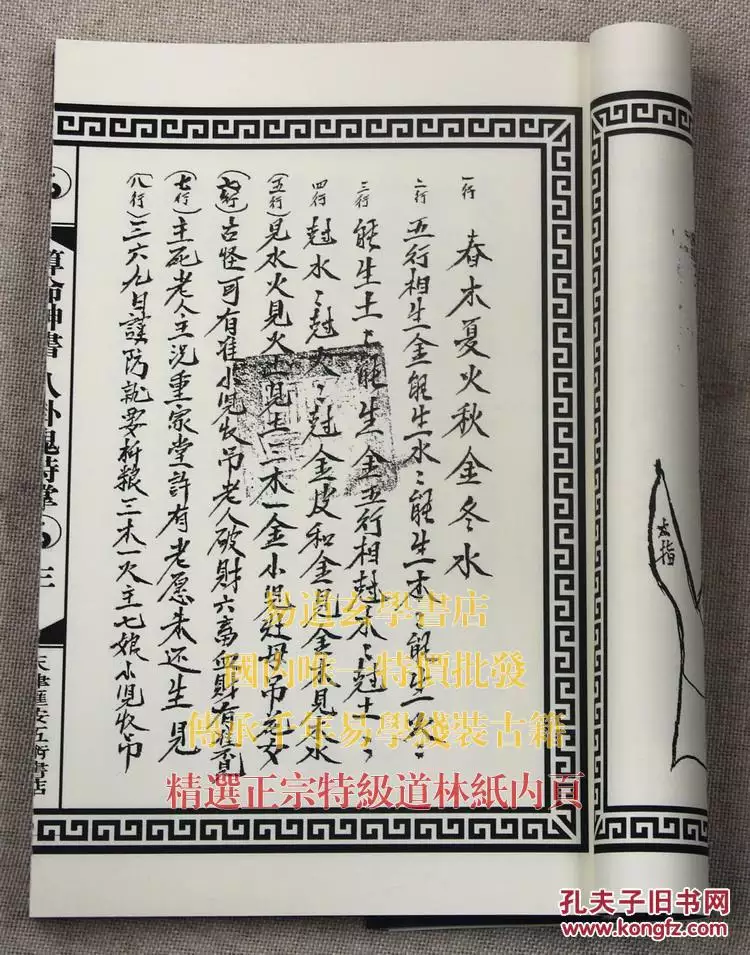 一行 春木夏火秋金冬水
二行 五行相生金能生水〻能生木〻能生火〻
三行 能生土〻能生金五行相尅木〻尅土〻
四行 尅水〻尅火〻尅金皮和金見金木見木水
(五行) 見水火見火土見土三木一金小児 母吊
古怪可有准小児收吊老人破財六畜血財有
(七行) 主死老人主况重家堂許有老愿未还生見
(八行) 三六九月謹防就要折粮三木一火主七娘小児收吊
算命神書 八卦鬼詩掌 三
天津
太指
易道玄學書店
國內唯一特價批發
傳承千年易學綫裝古籍
精選正宗特級道林紙内頁
孔夫子旧书网
www.kongfz.com